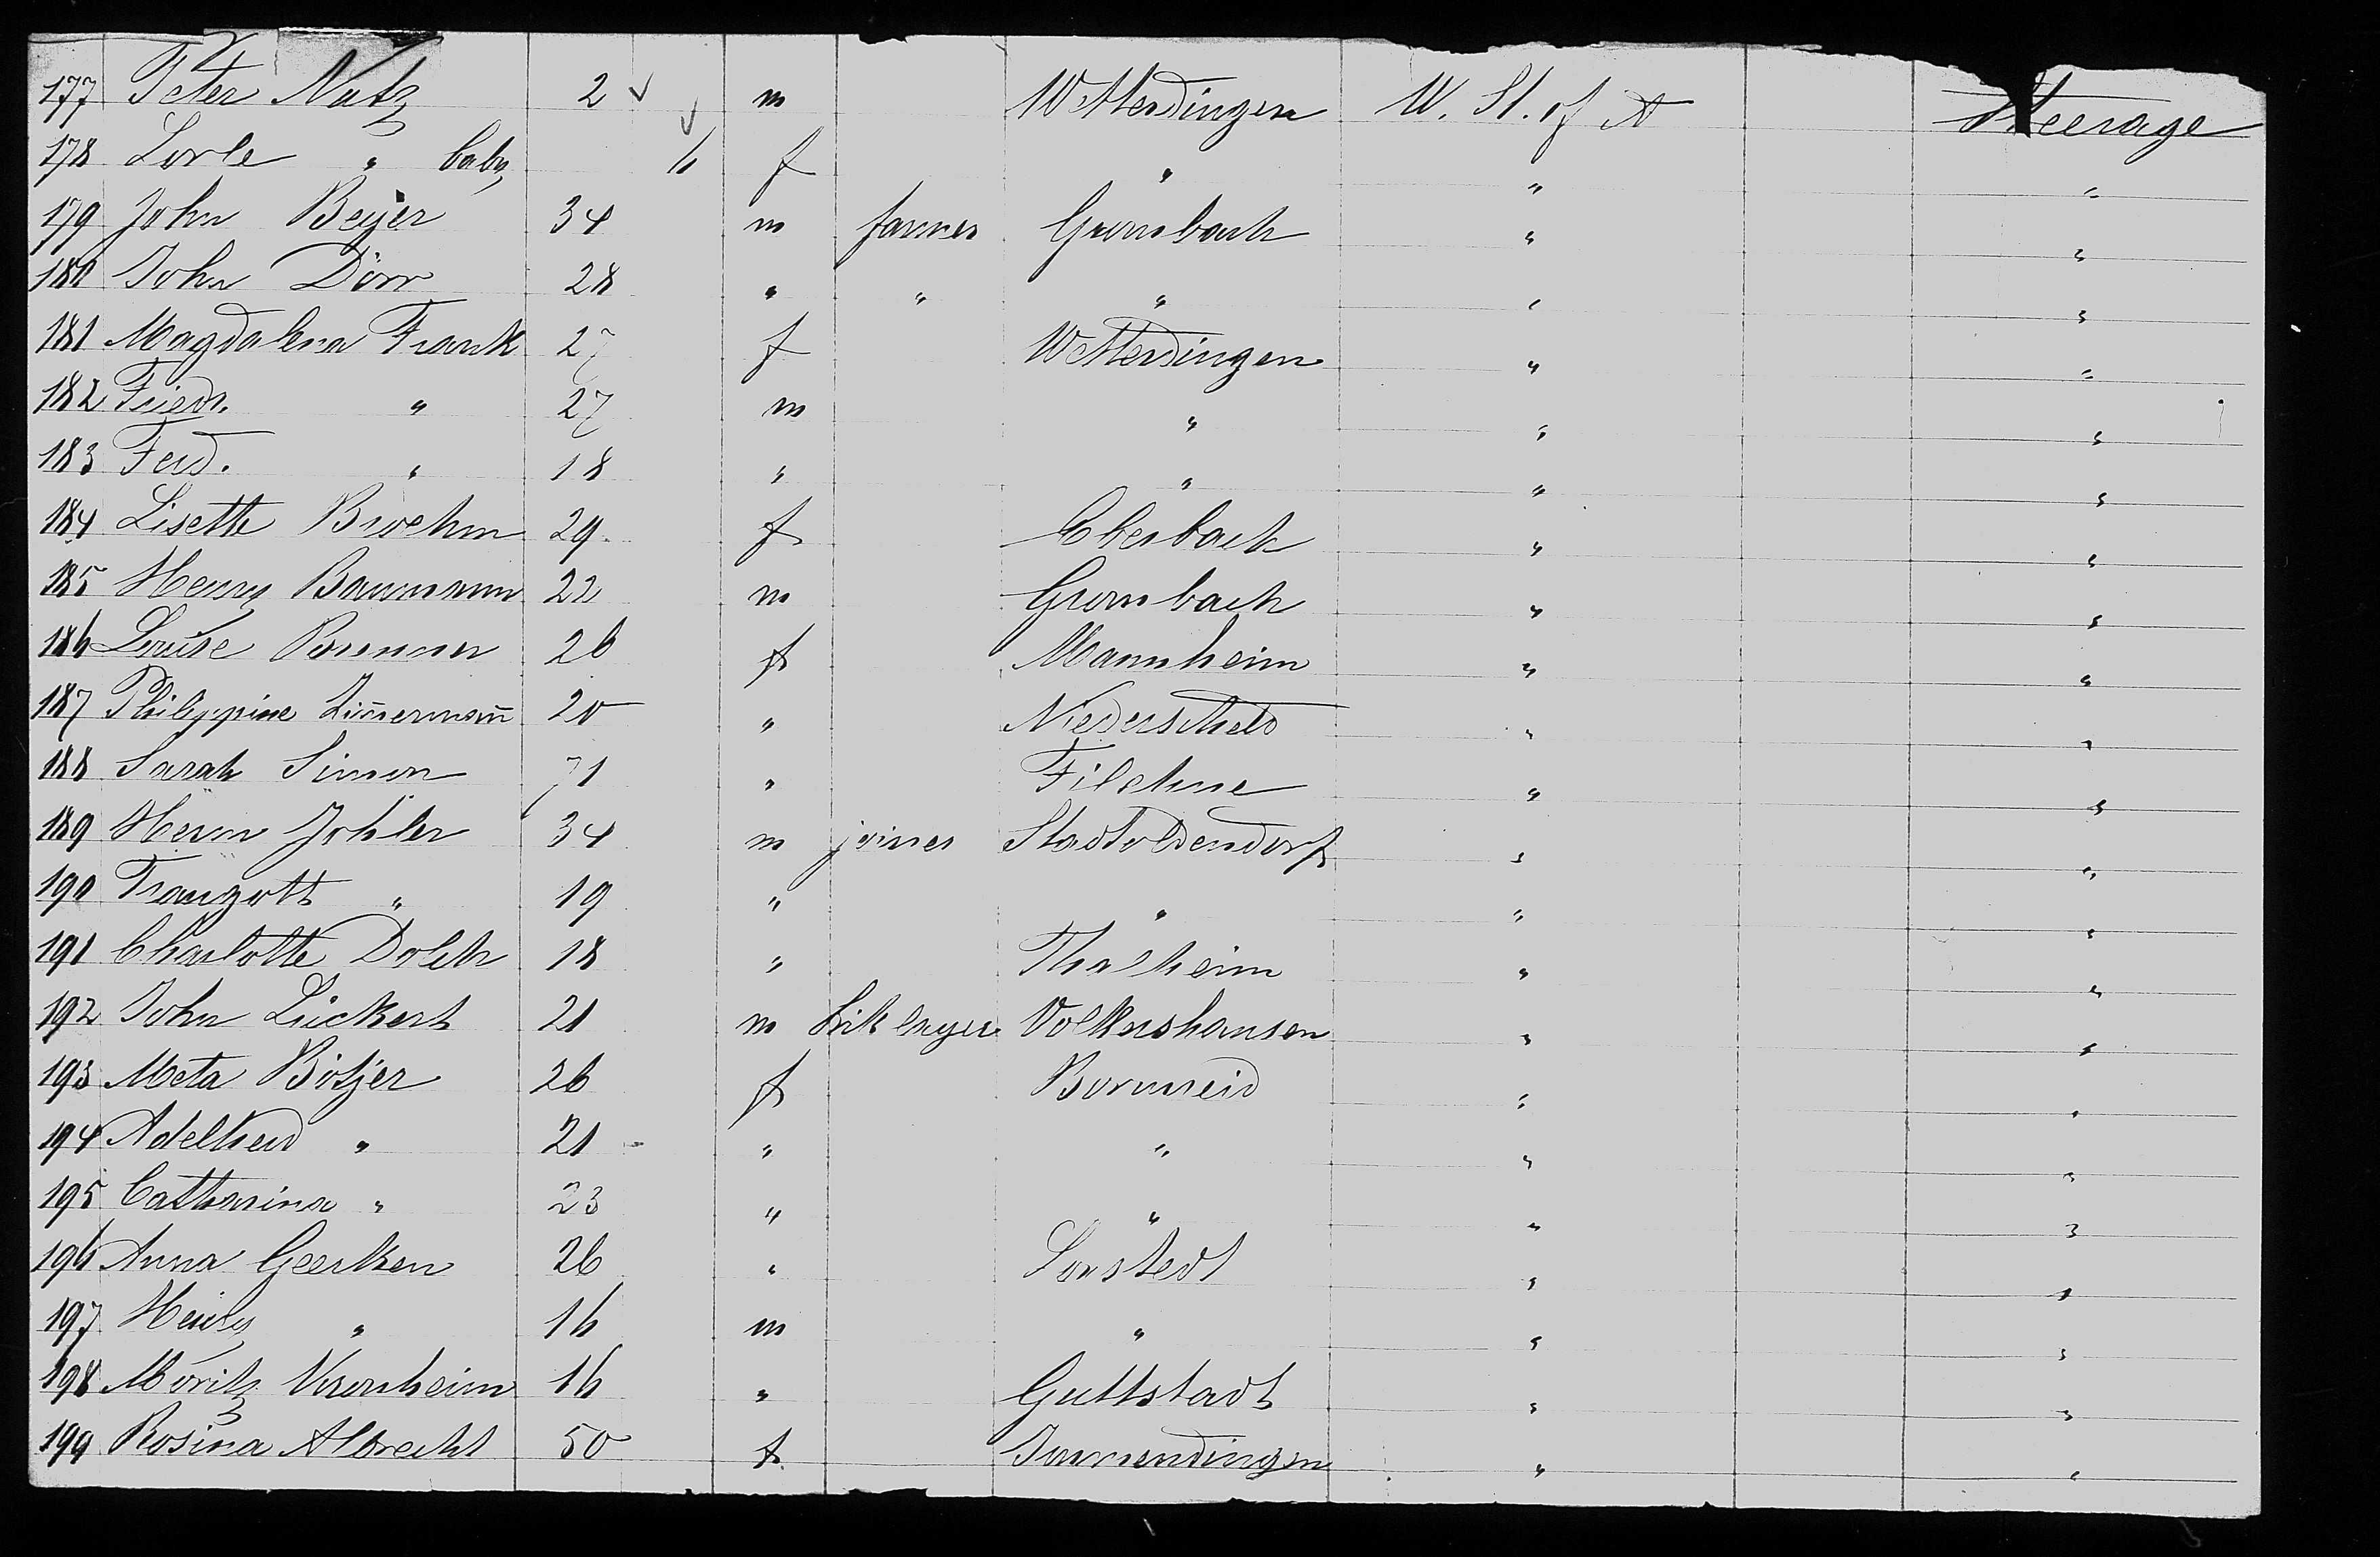 177 Peter Natz 2 m Wetterdingen U. St. of A Steerage
178 Lorle " baby 6 f " " "
179 John Beyer 34 m farmer Grumbach " "
180 John Dörr 28 " " " " "
181 Magdalena Frank 27 f Wetterdingen " "
182 Friedr. " 27 m " " "
183 Ferd. " 18 " " " "
184 Lisette Broehm 29 f Eberbach " "
185 Henry Baumann 22 m Grumbach " "
186 Louise Brunner 26 f Mannheim " "
187 Philippine Zim̄erman̄ 20 " Niederscheld " "
188 Sarah Simon 71 " Filehne " "
189 Herm Johler 34 m joiner Stadtoldendorf " "
190 Traugott " 19 " " " "
191 Charlotte Dolch 18 " Thalheim " "
192 John Lückert 21 m Volkershausen " "
193 Meta Bötjer 26 f " "
194 Adelheid " 21 " " " "
195 Catharina " 23 " " " "
196 Anna Geerken 26 " " "
197 Henry " 16 m " " "
198 Moritz 16 " Guttstadt " "
199 Rosina Albrecht 50 f " "